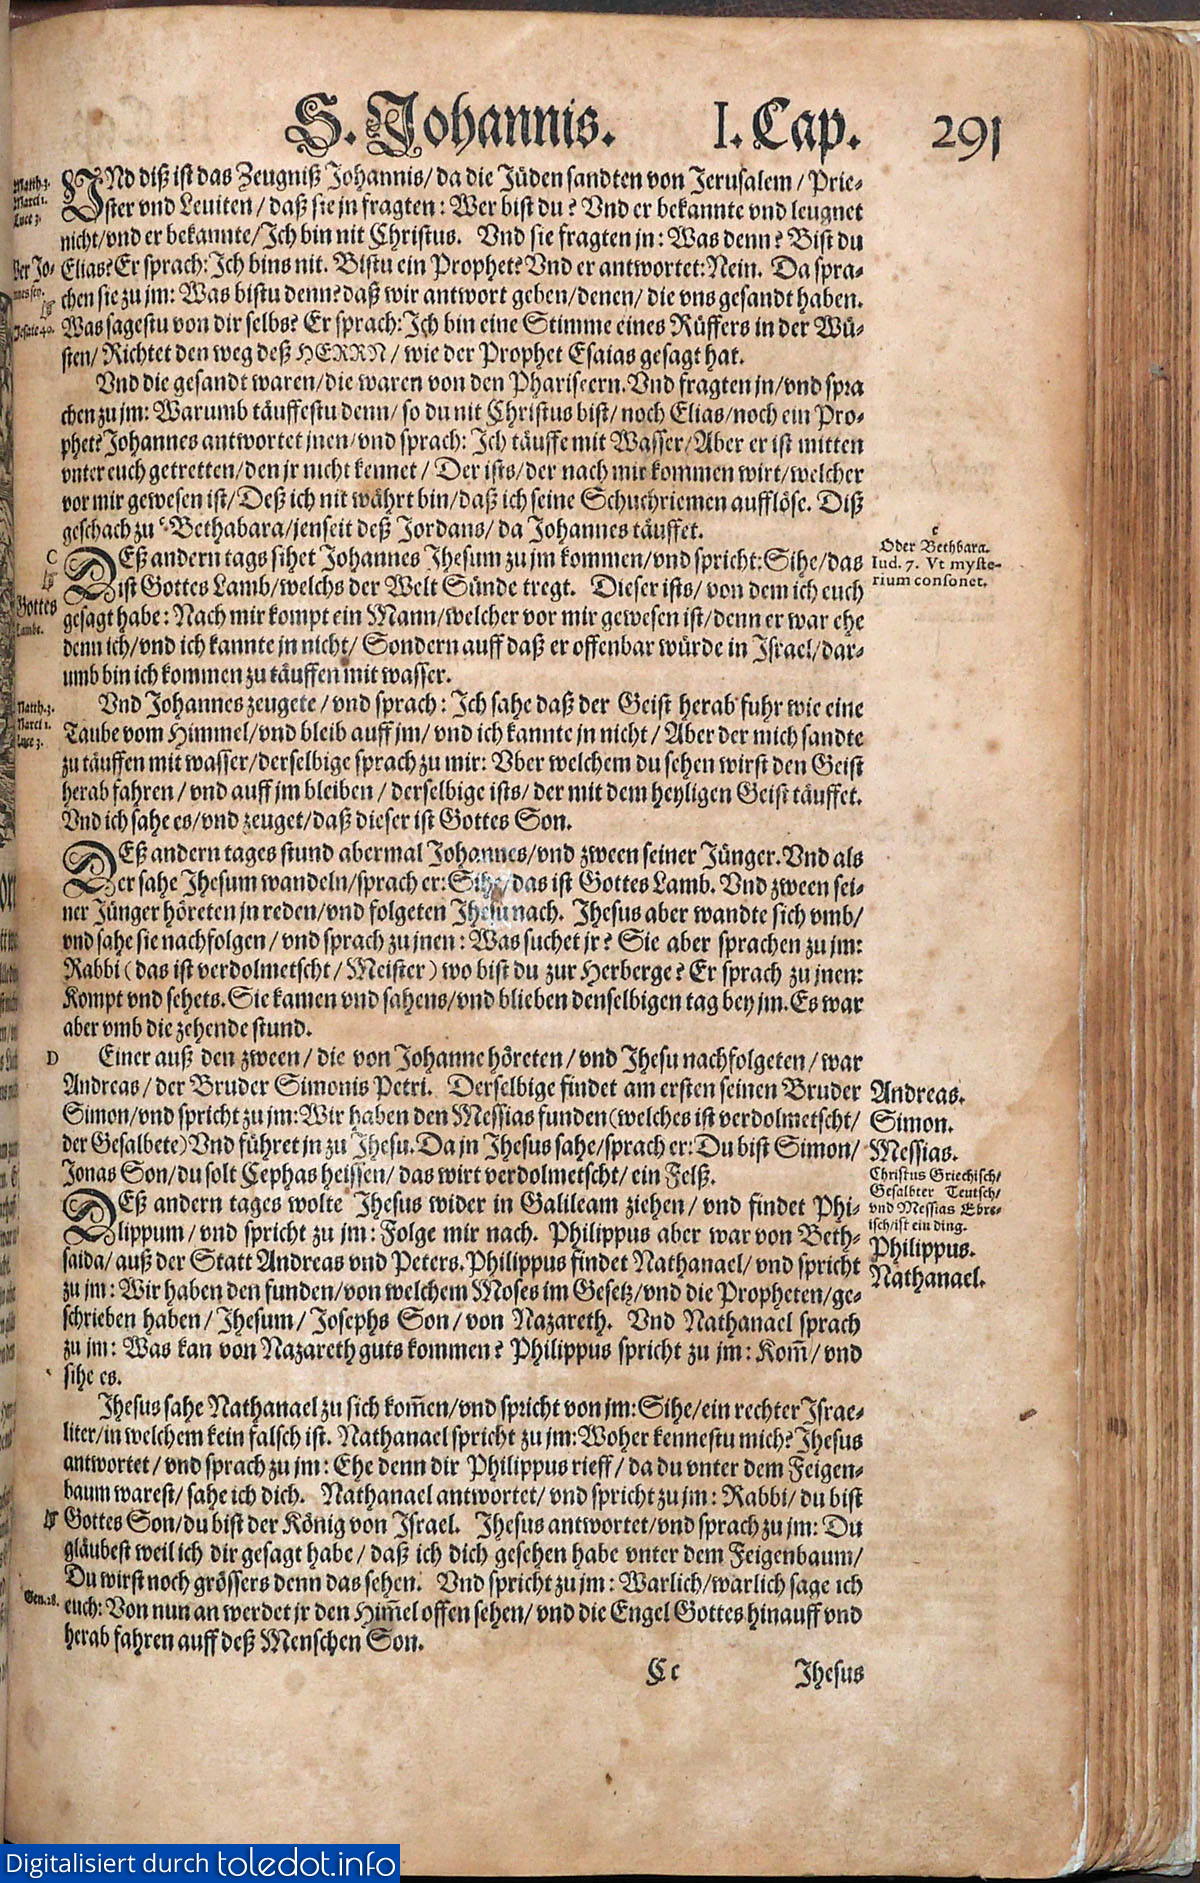 S. Johannis. I. Cap. 291
Matth. 3.
Marci 1.
Luce 3.
VNd diß ist das Zeugniß Johannis/ da die Jüden sandten von Jerusalem / Prie-
ster vnd Leuiten / daß sie jn fragten : Wer bist du ? Vnd er bekannte vnd leugnet
nicht/vnd er bekannte/Ich bin nit Christus. Vnd sie fragten jn : Was denn ? Bist du
Elias? Er sprach: Ich bins nit. Bistu ein Prophet? Vnd er antwortet: Nein. Da spra-
chen sie zu jm: Was bistu denn? daß wir antwort geben/denen/ die vns gesandt haben.
Jesaie 40.
Was sagestu von dir selbs? Er sprach: Ich bin eine Stimme eines Rüffers in der Wü-
sten/ Richtet den weg deß HERRN / wie der Prophet Esaias gesagt hat.
Vnd die gesandt waren/die waren von den Phariseern. Vnd fragten jn/vnd spra
chen zu jm: Warumb täuffestu denn/ so du nit Christus bist/ noch Elias/noch ein Pro-
phet? Johannes antwortet jnen/vnd sprach: Ich täuffe mit Wasser/Aber er ist mitten
vnter euch getretten/den jr nicht kennet / Der ists/der nach mir kommen wirt/welcher
vor mir gewesen ist/Deß ich nit währt bin/daß ich seine Schuchriemen aufflöse. Diß
geschach zu c Bethabara/jenseit deß Jordans/ da Johannes täuffet.
c
Oder Bethbara.
Iud. 7. Vt myste-
rium consonet.
C
Gottes
Lambt.
DEß andern tags sihet Johannes Jhesum zu jm kommen/vnd spricht: Sihe/das
ist Gottes Lamb/welchs der Welt Sünde tregt. Dieser ists/ von dem ich euch
gesagt habe : Nach mir kompt ein Mann/welcher vor mir gewesen ist/denn er war ehe
denn ich/vnd ich kannte jn nicht/ Sondern auff daß er offenbar würde in Israel/dar-
umb bin ich kommen zu täuffen mit wasser.
Matth. 3.
Marci 1.
Luce 3.
Vnd Johannes zeugete / vnd sprach : Ich sahe daß der Geist herab fuhr wie eine
Taube vom Himmel/vnd bleib auff jm/ vnd ich kannte jn nicht / Aber der mich sandte
zu täuffen mit wasser/derselbige sprach zu mir: Vber welchem du sehen wirst den Geist
herab fahren / vnd auff jm bleiben / derselbige ists/ der mit dem heyligen Geist täuffet.
Vnd ich sahe es/vnd zeuget/daß dieser ist Gottes Son.
DEß andern tages stund abermal Johannes/vnd zween seiner Jünger. Vnd als
er sahe Jhesum wandeln/sprach er: Sihe/das ist Gottes Lamb. Vnd zween sei-
ner Jünger höreten jn reden/vnd folgeten Jhesu nach. Jhesus aber wandte sich vmb/
vnd sahe sie nachfolgen / vnd sprach zu jnen : Was suchet jr? Sie aber sprachen zu jm:
Rabbi (das ist verdolmetscht / Meister) wo bist du zur Herberge? Er sprach zu jnen:
Kompt vnd sehets. Sie kamen vnd sahens/vnd blieben denselbigen tag bey jm. Es war
aber vmb die zehende stund.
D
Einer auß den zween / die von Johanne höreten / vnd Jhesu nachfolgeten / war
Andreas / der Bruder Simonis Petri. Derselbige findet am ersten seinen Bruder
Simon/vnd spricht zu jm: Wir haben den Messias funden (welches ist verdolmetscht/
der Gesalbete) Vnd führet jn zu Jhesu. Da jn Jhesus sahe/sprach er: Du bist Simon/
Jonas Son/du solt Cephas heissen/ das wirt verdolmetscht/ ein Felß.
Andreas.
Simon.
Messias.
Christus Griechisch/
Gesalbter Teutsch/
vnd Messias Ebre-
isch/ist ein ding.
Philippus.
Nathanael.
DEß andern tages wolte Jhesus wider in Galileam ziehen/ vnd findet Phi-
lippum / vnd spricht zu jm : Folge mir nach. Philippus aber war von Beth-
saida/ auß der Statt Andreas vnd Peters. Philippus findet Nathanael/ vnd spricht
zu jm : Wir haben den funden/von welchem Moses im Gesetz/vnd die Propheten/ge-
schrieben haben / Jhesum / Josephs Son / von Nazareth. Vnd Nathanael sprach
zu jm : Was kan von Nazareth guts kommen ? Philippus spricht zu jm : Kom̃/ vnd
sihe es.
Jhesus sahe Nathanael zu sich kom̃en/vnd spricht von jm: Sihe/ein rechter Israe-
liter/in welchem kein falsch ist. Nathanael spricht zu jm: Woher kennestu mich? Jhesus
antwortet / vnd sprach zu jm : Ehe denn dir Philippus rieff/ da du vnter dem Feigen-
baum warest/ sahe ich dich. Nathanael antwortet/ vnd spricht zu jm : Rabbi/ du bist
Gottes Son/du bist der König von Israel. Jhesus antwortet/vnd sprach zu jm: Du
gläubest weil ich dir gesagt habe / daß ich dich gesehen habe vnter dem Feigenbaum/
Du wirst noch grössers denn das sehen. Vnd spricht zu jm : Warlich/warlich sage ich
Gen. 28.
euch: Von nun an werdet jr den Him̃el offen sehen/ vnd die Engel Gottes hinauff vnd
herab fahren auff deß Menschen Son.
Cc Jhesus
Digitalisiert durch toledot.info